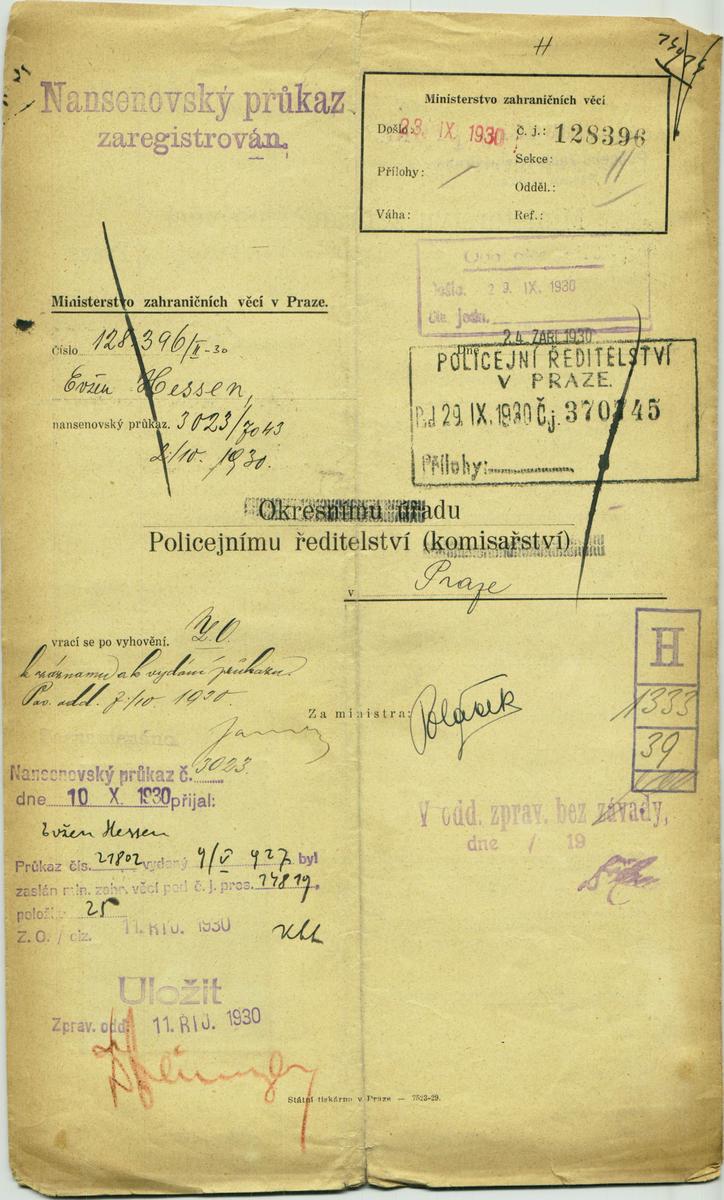 H
Nansenovský průkaz
zaregistrován.
Ministerstvo zahraničních věcí
Došlo: 23. IX. 1930 č. j.: 128396
Sekce: II
Přílohy: /
Odděl.:
Váha: Ref.:
Došlo. 29. IX. 1930
24. ZÁŘÍ 1930
Ministerstvo zahraničních věcí v Praze.
Číslo 128.396/II-30
Evžen Hessen,
nansenovský průkaz. 3023/7043
2./10. 1930.
POLICEJNÍ ŘEDITELSTVÍ
V PRAZE.
Dd 29. IX. 1930 Čj. 370745
Přílohy:
Okresnímu úřadu
Policejnímu ředitelství (komisařství)
v Praze
vrací se po vyhovění. Z.O.
k záznamu a k vydání průkazu.
Pas. odd. 7./10. 1930.
Za ministra:
H
1333
39
Nansenovský průkaz č. 3023
dne 10 X. 1930 přijal:
Evžen Hessen
Průkaz čís. 21802 vydaný 9/V 927 byl
zaslán min. zahr. věcí pod č. j. pres. 14819.
polož. 25
Z. O. / ciz. 11. ŘÍJ. 1930
V odd. zprav. bez závady,
dne / 19
Uložit
Zprav. odd. 11. ŘÍJ. 1930
Státní tiskárna v Praze — 7523-29.